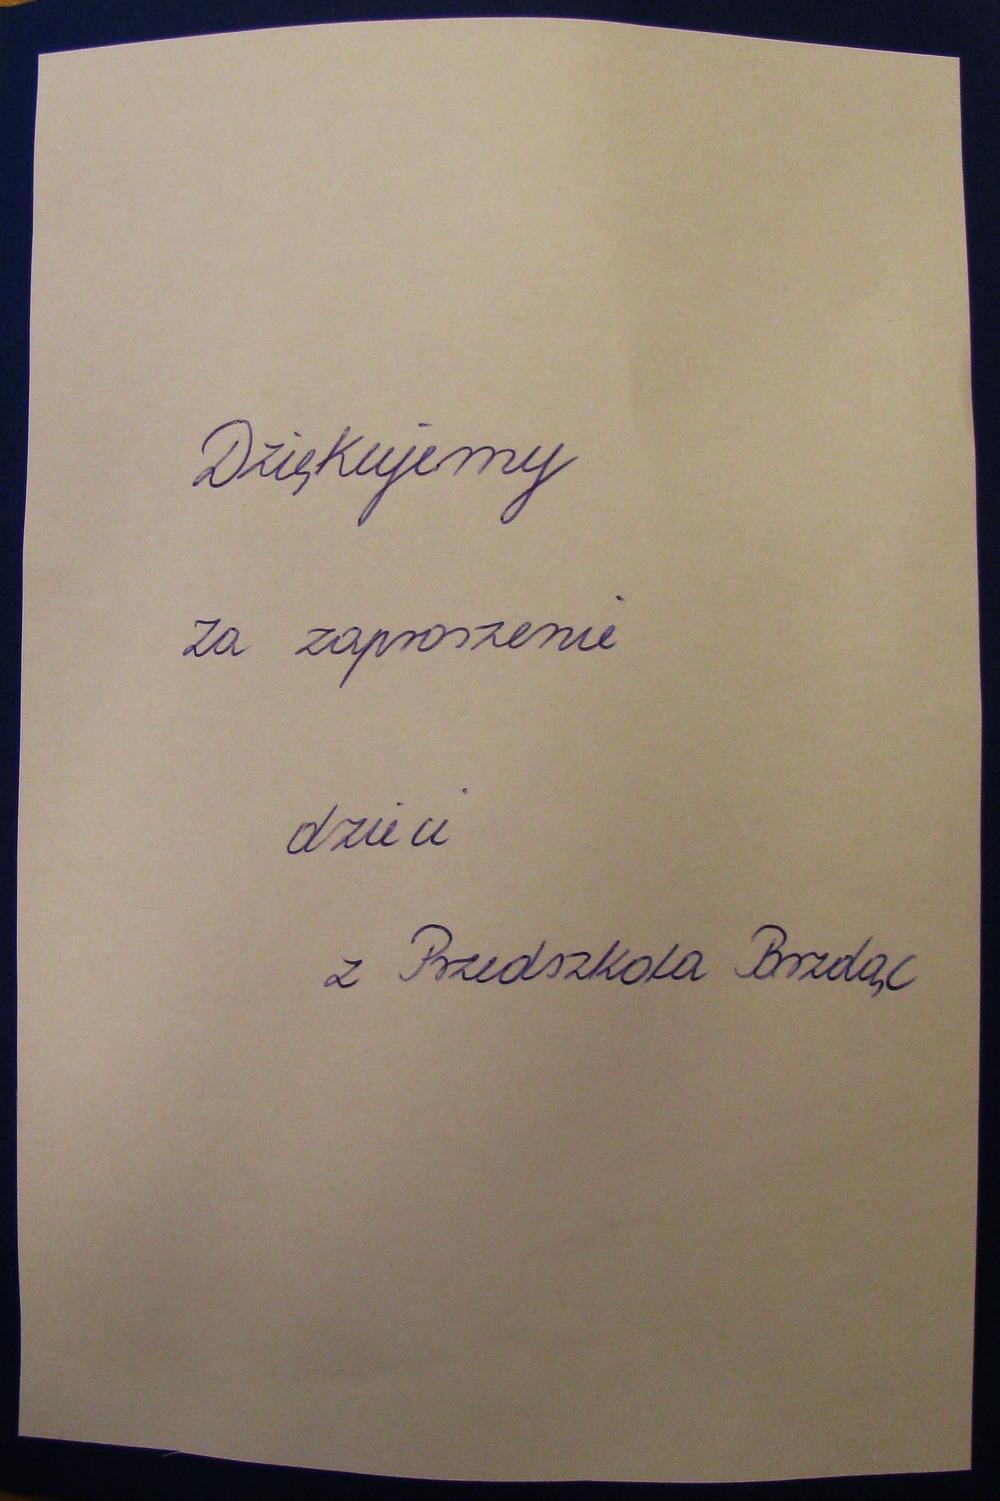 Dziękujemy
za zaproszenie
dzieci
z Przedszkola Brzdąc